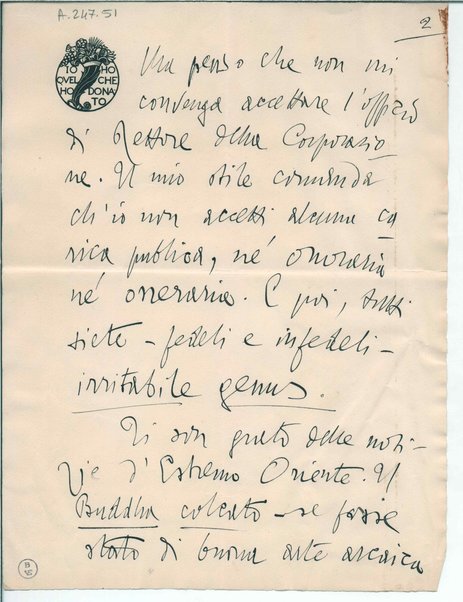 A.247.51
2
IO HO
QVEL CHE
HO DONA
TO
Ma penso che non mi
convenga accettare l'officio
di Rettore della Corporazio
ne. Il mio stile comanda
ch'io non accetti alcuna ca
rica publica, né onoraria
né oneraria. E poi, tutti
siete – fedeli e infedeli –
irritabile genus.
Ti son grato delle noti-
zie d'Estremo Oriente. Il
Buddha colcato – se fosse
stato di buona arte arcaica